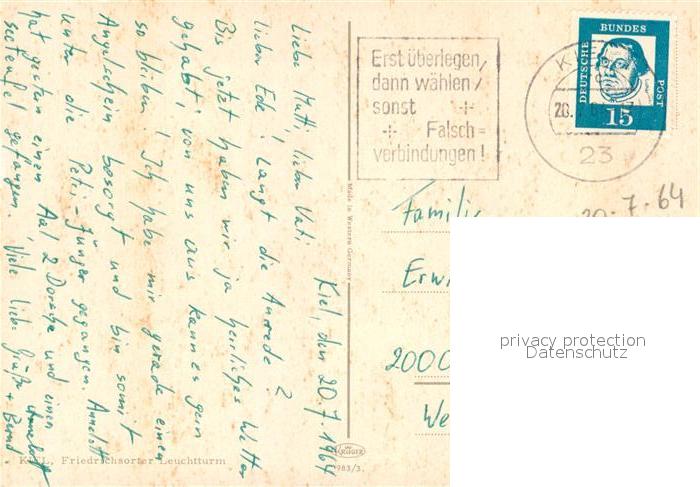 Kiel, den 20.7.1964
Liebe Mutti, lieber Vati
lieber Ede! Langt die Anrede?
Bis jetzt haben wir ja herrliches Wetter
gehabt, von uns aus kann es gern
so bleiben! Ich habe mir gerade einen
Angelschein besorgt und bin somit
unter die Petri-Jünger gegangen. Annelott
hat gestern einen Aal, 2 Dorsche und einen
Seeteufel gefangen. Viele liebe Grüße
Annelott
+ Bernd
KIEL, Friedrichsorter Leuchtturm
Made in Western Germany
KRÜGER
983/3.
Erst überlegen,
dann wählen,
sonst
Falsch=
verbindungen!
23
DEUTSCHE
BUNDES
POST
15
20.7.64
Famili
Erwi
2000
We
privacy protection
Datenschutz